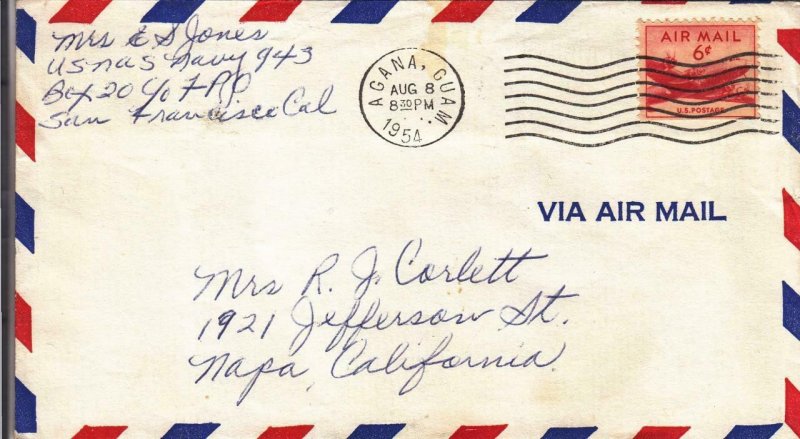 Mrs E S Jones
US NAS Navy 943
Box 20 c/o FPO
San Francisco Cal
AGANA, GUAM.
AUG 8
8 30 PM
1954
AIR MAIL
6¢
U.S. POSTAGE
VIA AIR MAIL
Mrs R. J. Corlett
1921 Jefferson St.
Napa, California.